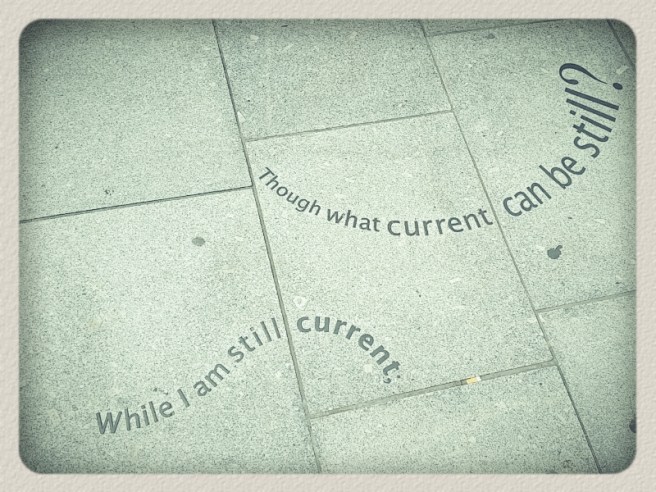 Though what current can be still?
While I am still current;